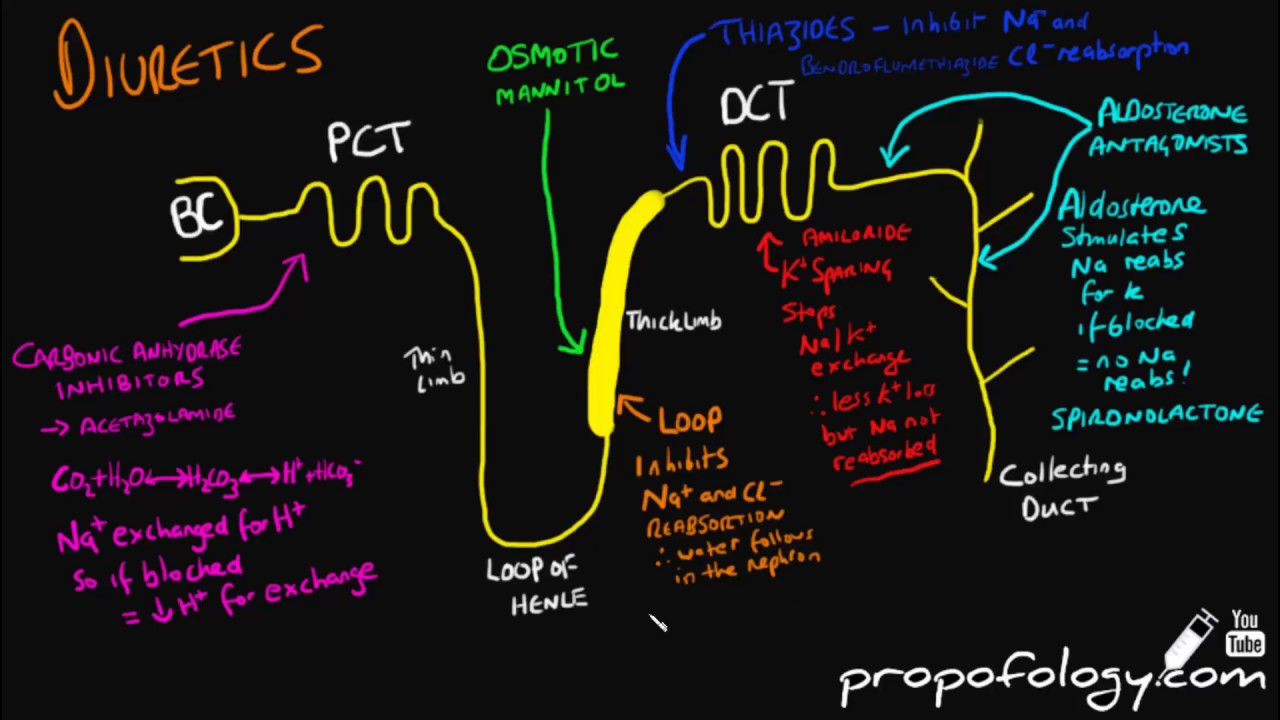 DIURETICS
OSMOTIC
MANNITOL
THIAZIDES – Inhibit Na⁺ and
BENDROFLUMETHIAZIDE Cl⁻ reabsorption
BC
PCT
DCT
ALDOSTERONE
ANTAGONISTS
Aldosterone
Stimulates
Na reabs
for K
if blocked
= no Na
reabs!
SPIRONOLACTONE
CARBONIC ANHYDRASE
INHIBITORS
→ ACETAZOLAMIDE
CO₂+H₂O↔H₂CO₃↔H⁺+HCO₃⁻
Na⁺ exchanged for H⁺
So if blocked
= ↓ H⁺ for exchange
Thin
Limb
Thick Limb
LOOP OF
HENLE
LOOP
Inhibits
Na⁺ and Cl⁻
REABSORTION
∴ water follows
in the nephron
AMILORIDE
K⁺ SPARING
Stops
Na/K⁺
exchange
∴ less K⁺ loss
but Na not
reabsorbed
Collecting
DUCT
You
Tube
propofology.com